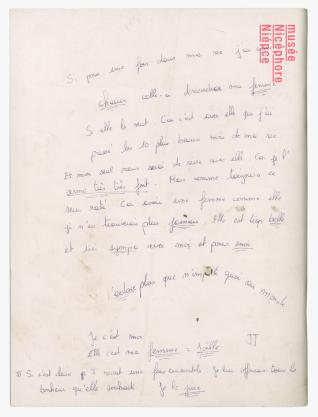 musée
Nicéphore
Niépce
Si pour une fois dans ma vie j'ai une
chance celle-ci deviendra ma femme
Si elle le veut. Car c'est avec elle que j'ai
passé les 10 plus beaux mois de ma vie
Et mon seul rêve serai de vivre avec elle. Car je l'
aime très très fort. Mais comme toujours ce
sera raté Car avoir une femme comme elle
je n'en trouverais plus jamais. Elle est trop belle
et si sympa avec moi et pour moi
J'adore plus que n'importe quoi au monde
Je c'est moi
Elle c'est ma femme = Joëlle
Si c'est claire qu' revient une fois ensemble Je lui offrirais tous le
bonheur qu'elle souhaite Je le jure